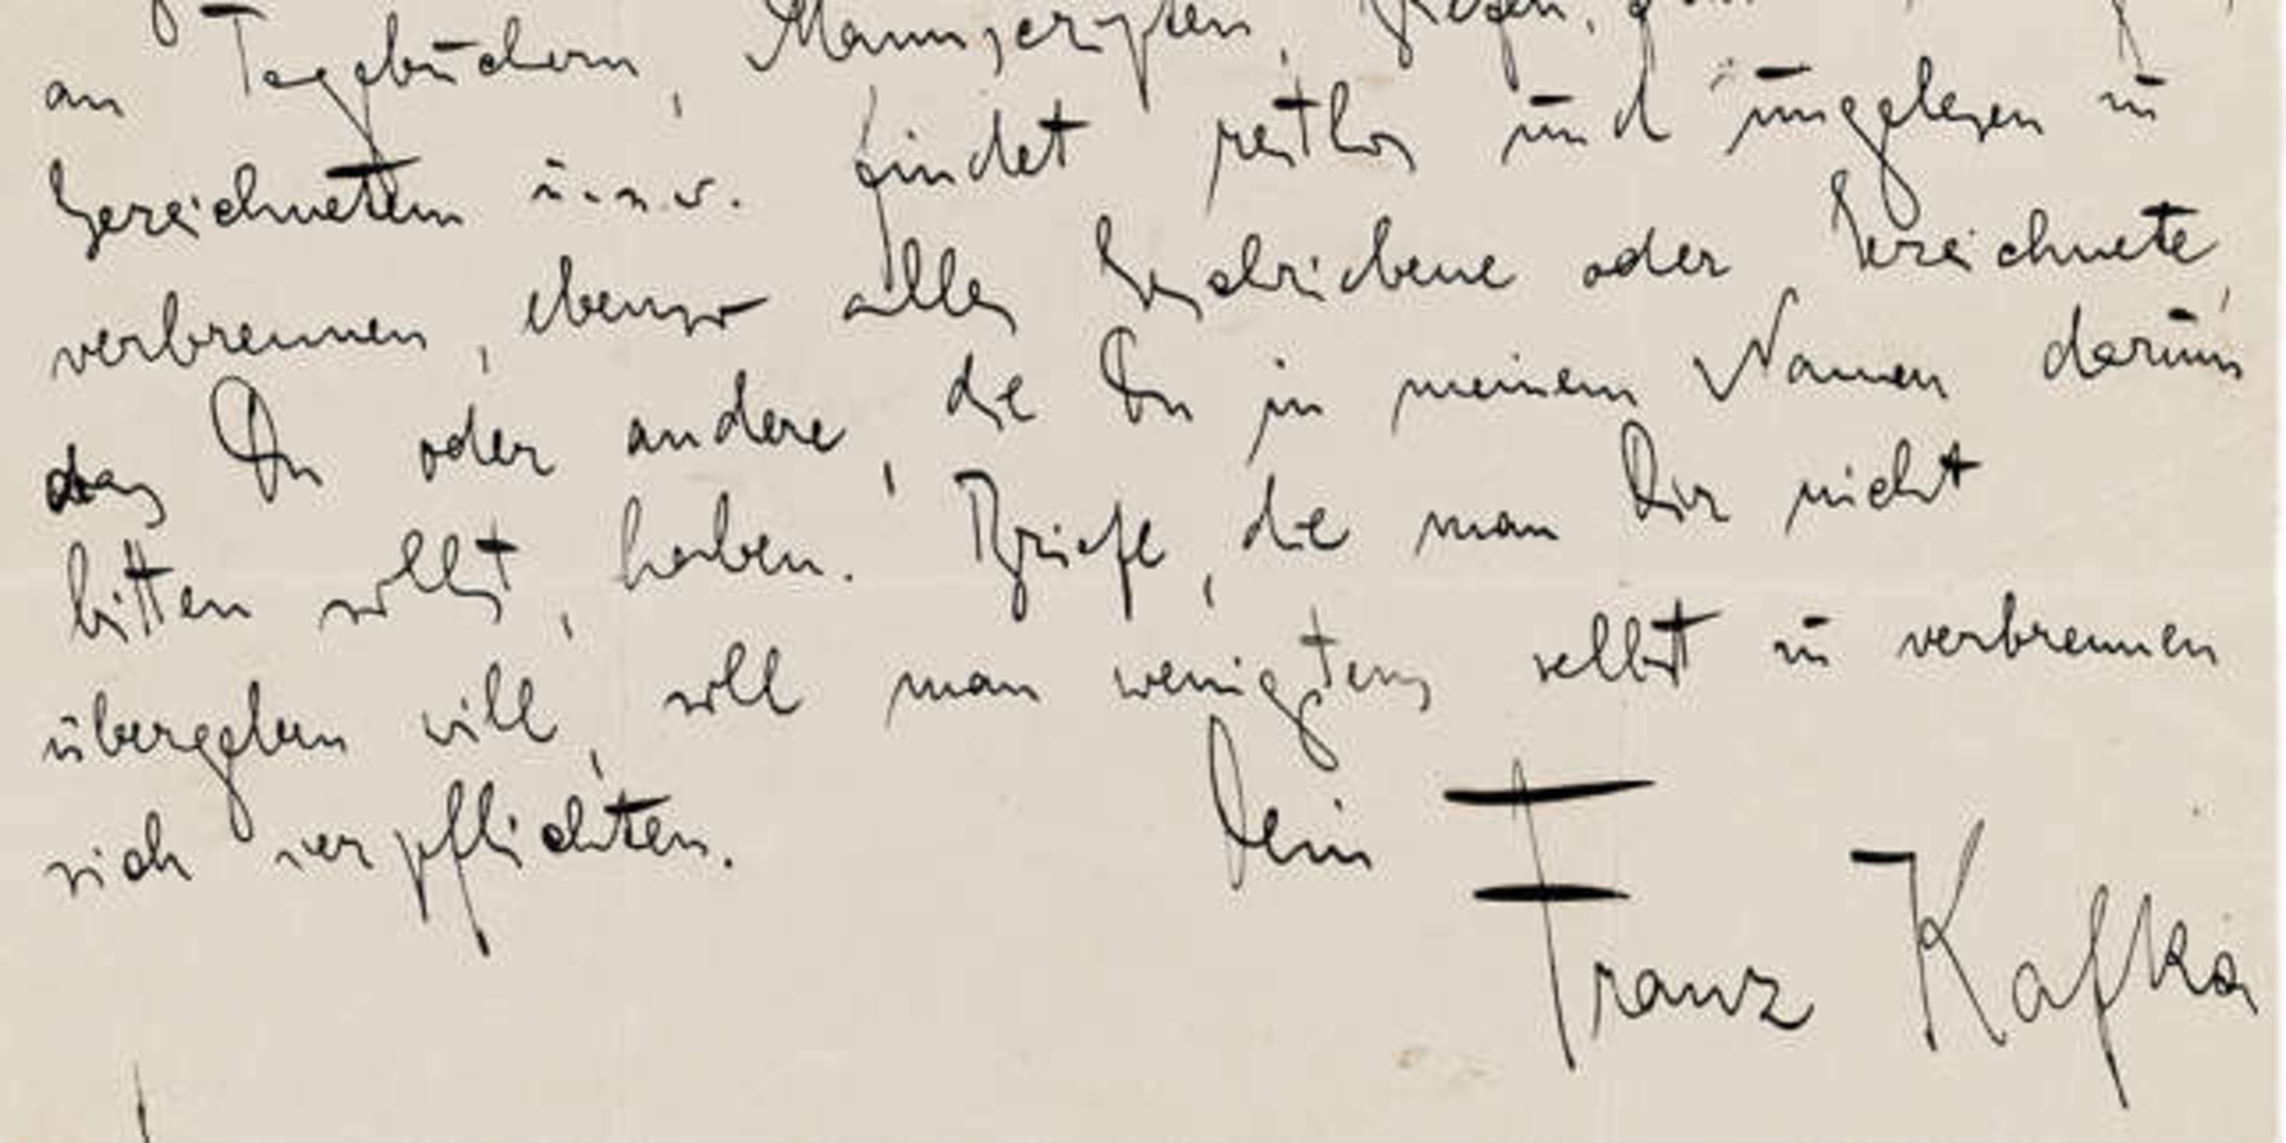 an Tagebüchern, Manuscripten,
Gezeichnetem u.s.w. findet restlos und ungelesen zu
verbrennen, ebenso alles Geschriebene oder Gezeichnete,
das Du oder andere, die Du in meinem Namen darum
bitten sollst, haben. Briefe, die man Dir nicht
übergeben will, soll man wenigstens selbst zu verbrennen
sich verpflichten.
Dein Franz Kafka